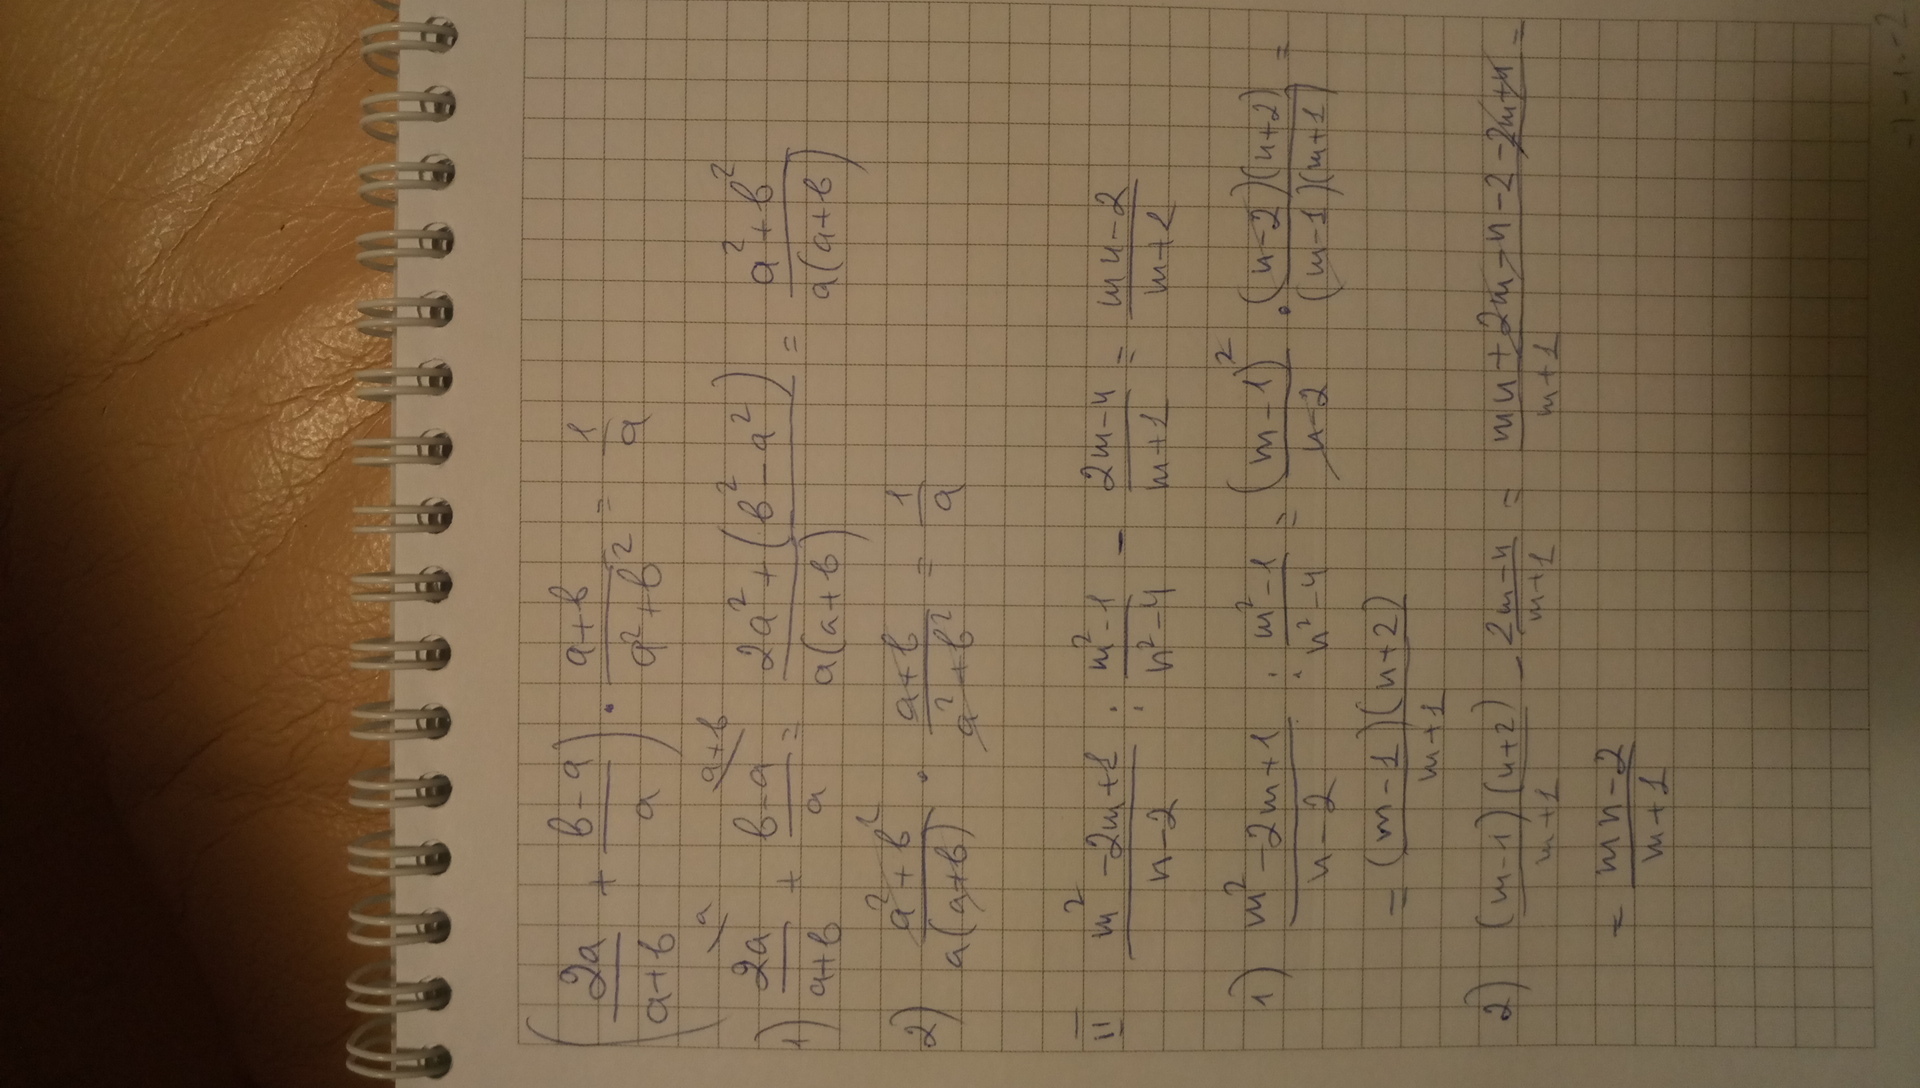 (2a/(a+b) + (b-a)/a) · (a+b)/(a²+b²) = 1/a
1) 2a/(a+b) \a + (b-a)/a /a+b = (2a²+(b²-a²))/(a(a+b)) = (a²+b²)/(a(a+b))
2) (a²+b²)/(a(a+b)) · (a+b)/(a²+b²) = 1/a
II (m²-2m+1)/(n-2) : (m²-1)/(n²-4) - (2m-n)/(m+1) = (mn-2)/(m+1)
1) (m²-2m+1)/(n-2) : (m²-1)/(n²-4) = (m-1)²/(n-2) · ((n-2)(n+2))/((m-1)(m+1)) =
= ((m-1)(n+2))/(m+1)
2) ((m-1)(n+2))/(m+1) - (2m-n)/(m+1) = (mn+2m-n-2-2m+n)/(m+1) =
= (mn-2)/(m+1)